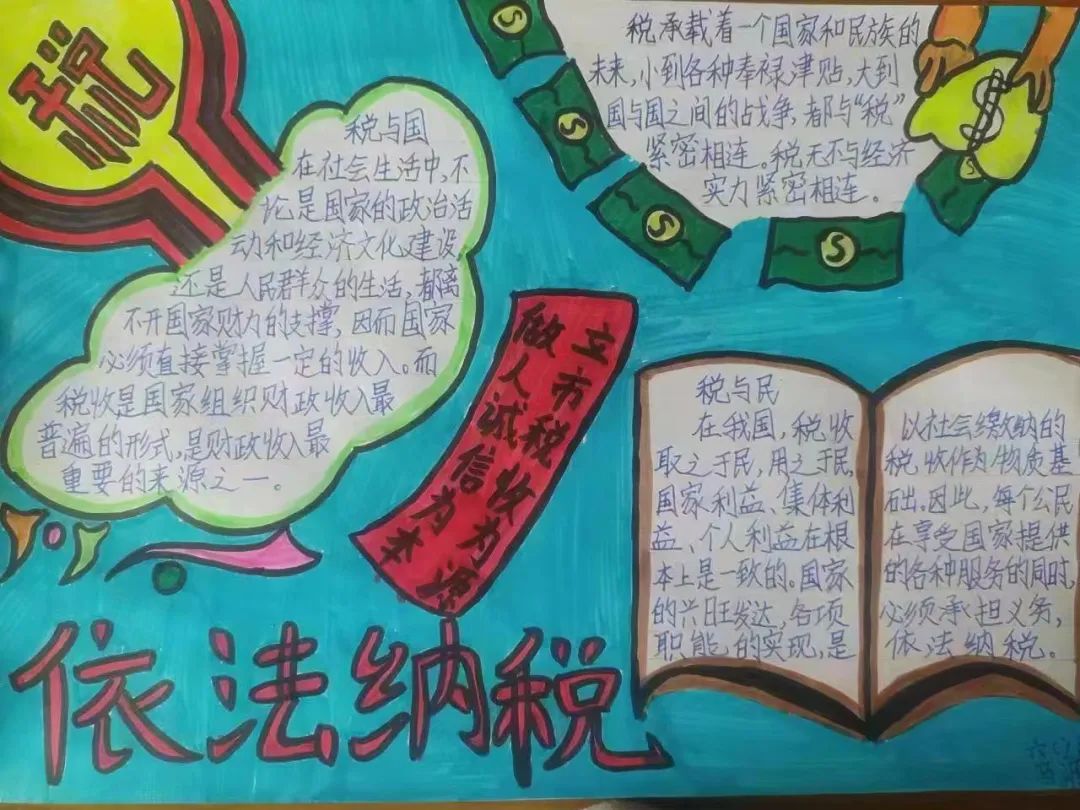 税
税承载着一个国家和民族的
未来,小到各种奉禄津贴,大到
国与国之间的战争,都与“税”
紧密相连。税无不与经济
实力紧密相连。
税与国
在社会生活中,不
论是国家的政治活
动和经济文化建设
还是人民群众的生活,都离
不开国家财力的支撑,因而国家
必须直接掌握一定的收入。而
税收是国家组织财政收入最
普遍的形式,是财政收入最
重要的来源之一。
立市税收为源
做人诚信为本
税与民
在我国,税收
取之于民,用之于民,
国家利益、集体利
益、个人利益在根
本上是一致的。国家
的兴旺发达,各项
职能的实现,是
以社会缴纳的
税收作为物质基
础。因此,每个公民
在享受国家提供
的各种服务的同时,
必须承担义务,
依法纳税。
依法纳税